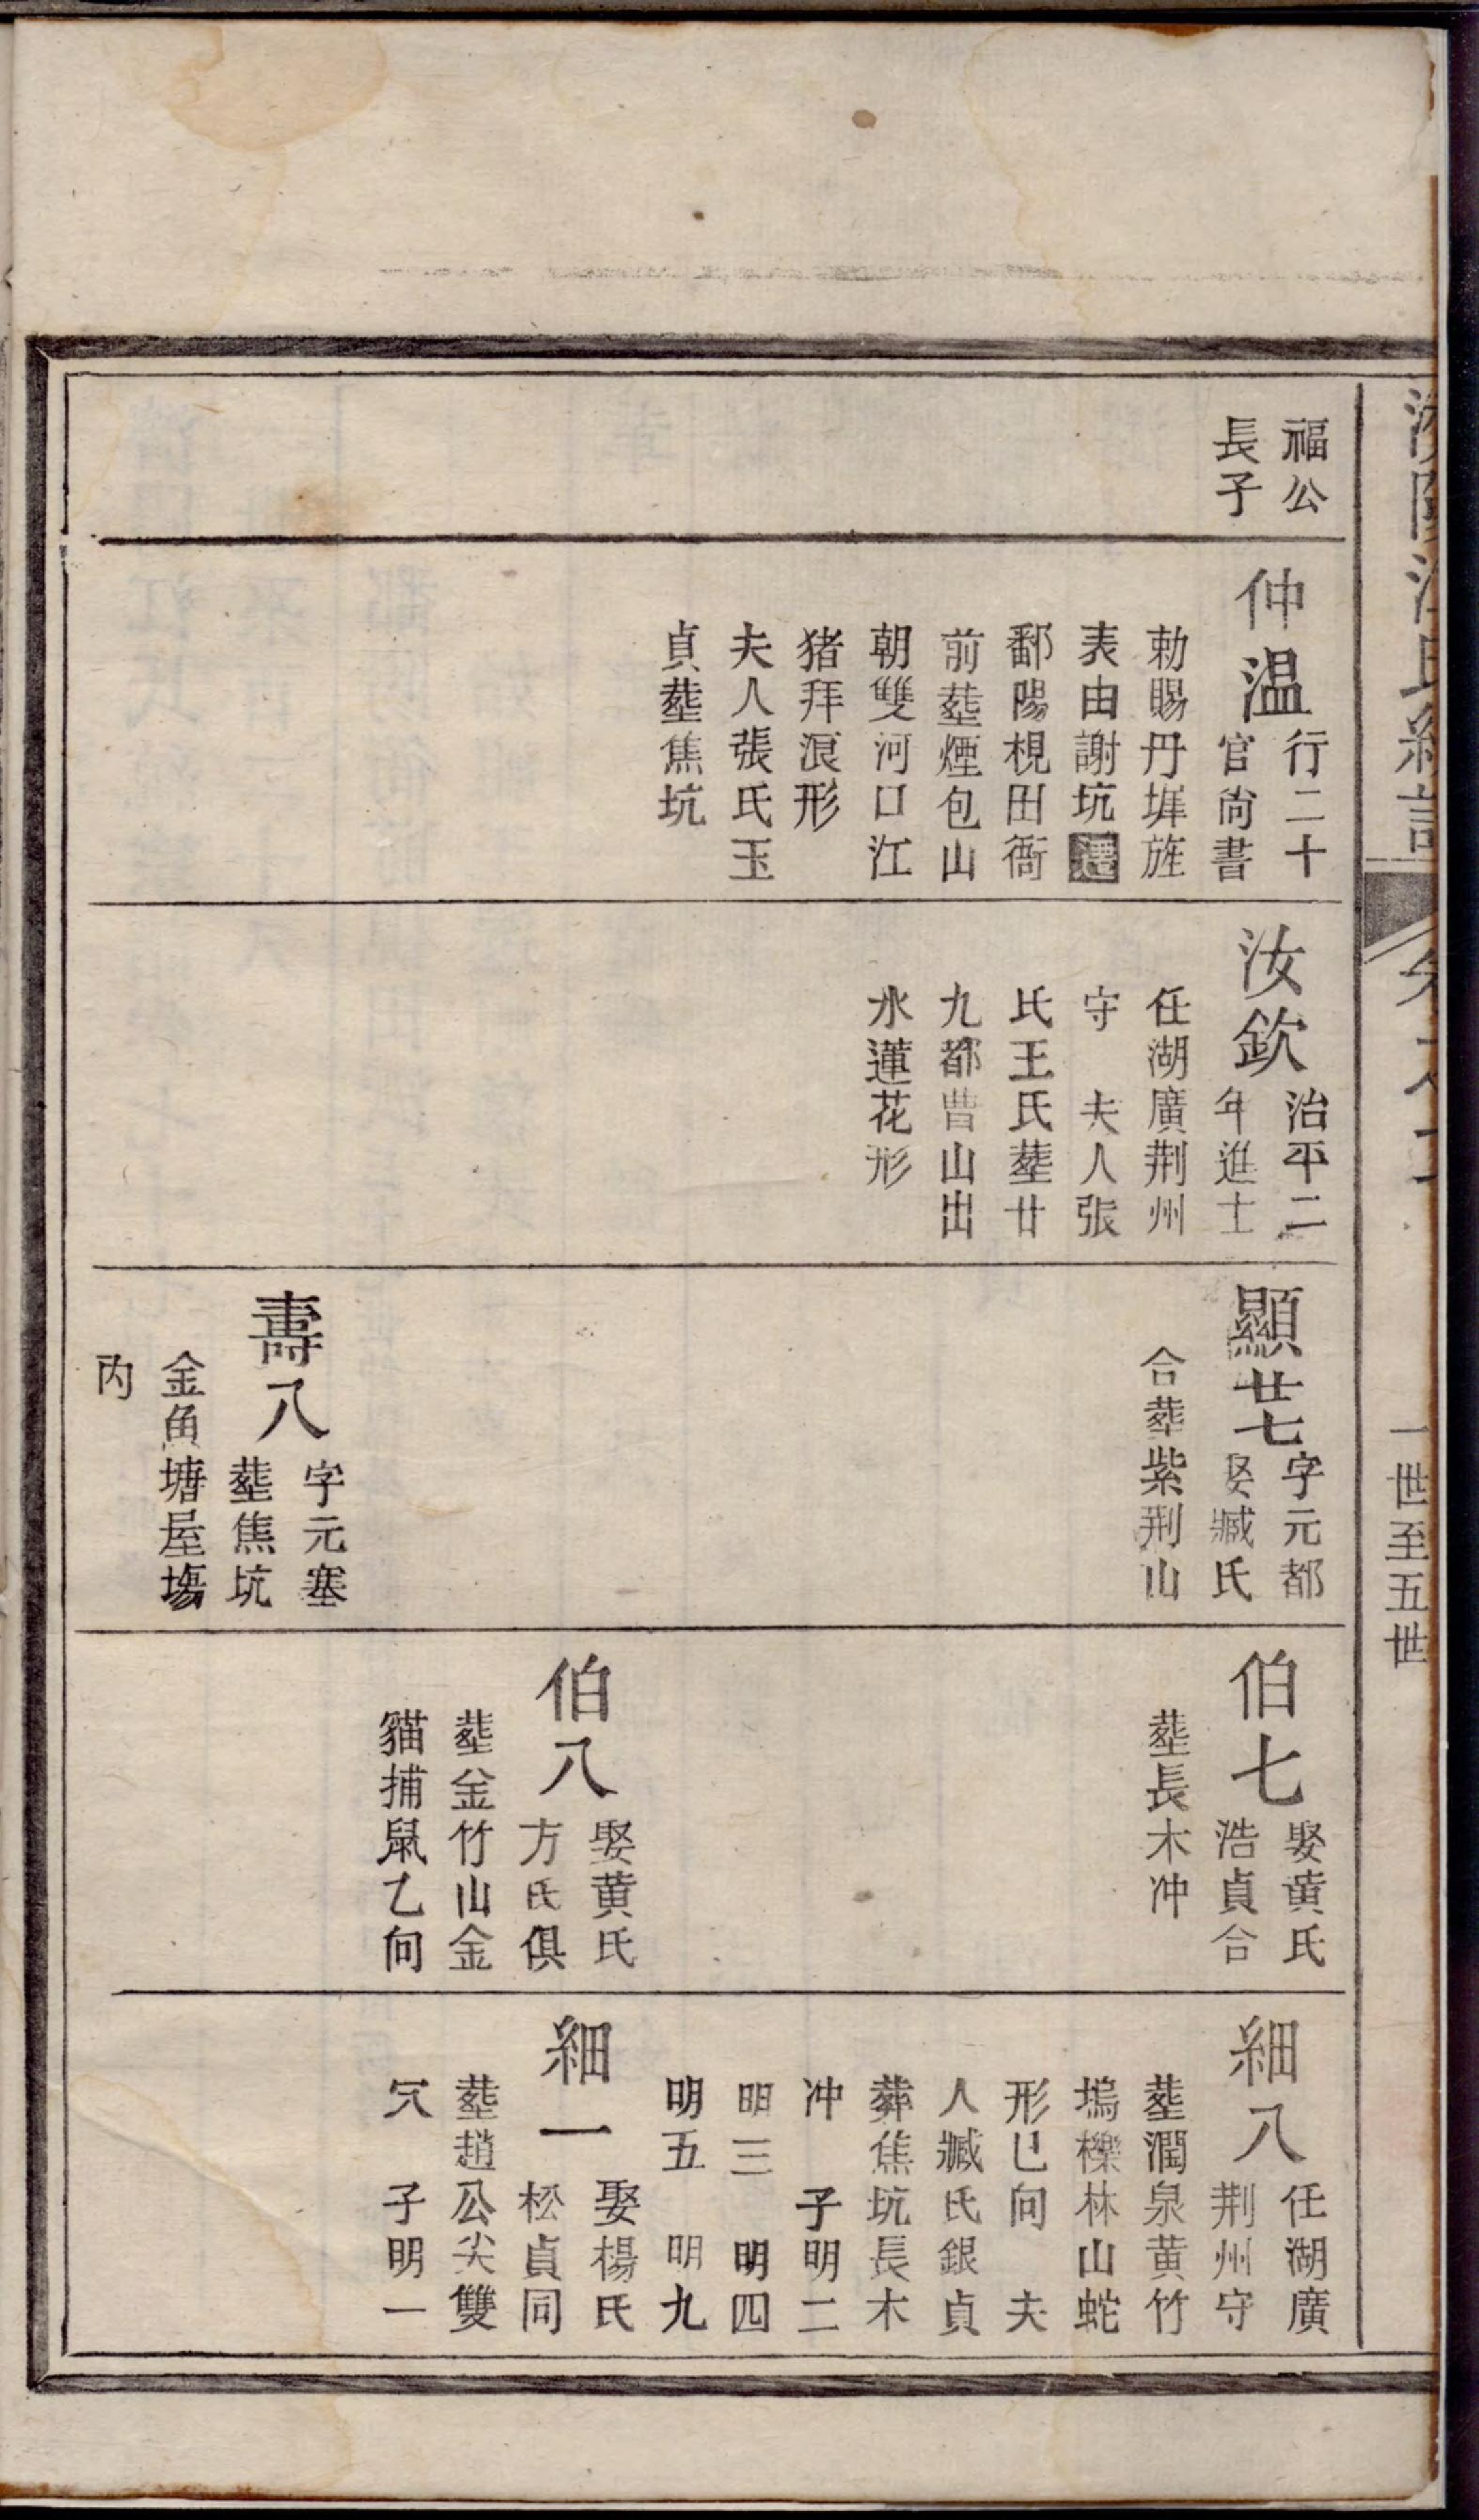 濟陽江氏統譜
卷之
一世至五世
福公
長子
仲温
行二十
官尚書
勅賜丹墀旌
表由謝坑遷
鄱陽梘田衙
前塟煙包山
朝雙河口江
猪拜浪形
夫人張氏玉
貞塟焦坑
汝欽
治平二
年進士
任湖廣荆州
守 夫人張
氏王氏塟廿
九都曹山出
水蓮花形
顯廿七
字元都
娶臧氏
合葬紫荆山
壽八
字元塞
塟焦坑
金魚塘屋塲
内
伯七
娶黄氏
浩貞合
塟長木冲
伯八
娶黄氏
方氏俱
塟金竹山金
貓捕鼠乙向
細八
任湖廣
荆州守
塟潤泉黄竹
塢櫟林山蛇
形巳向 夫
人臧氏銀貞
葬焦坑長木
冲 子明二
明三 明四
明五 明九
細一
娶楊氏
松貞同
塟趙公尖雙
穴 子明一